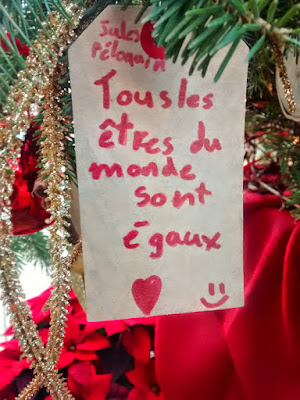 Jules
Péloquin
Tous les
êtres du
monde
sont
égaux